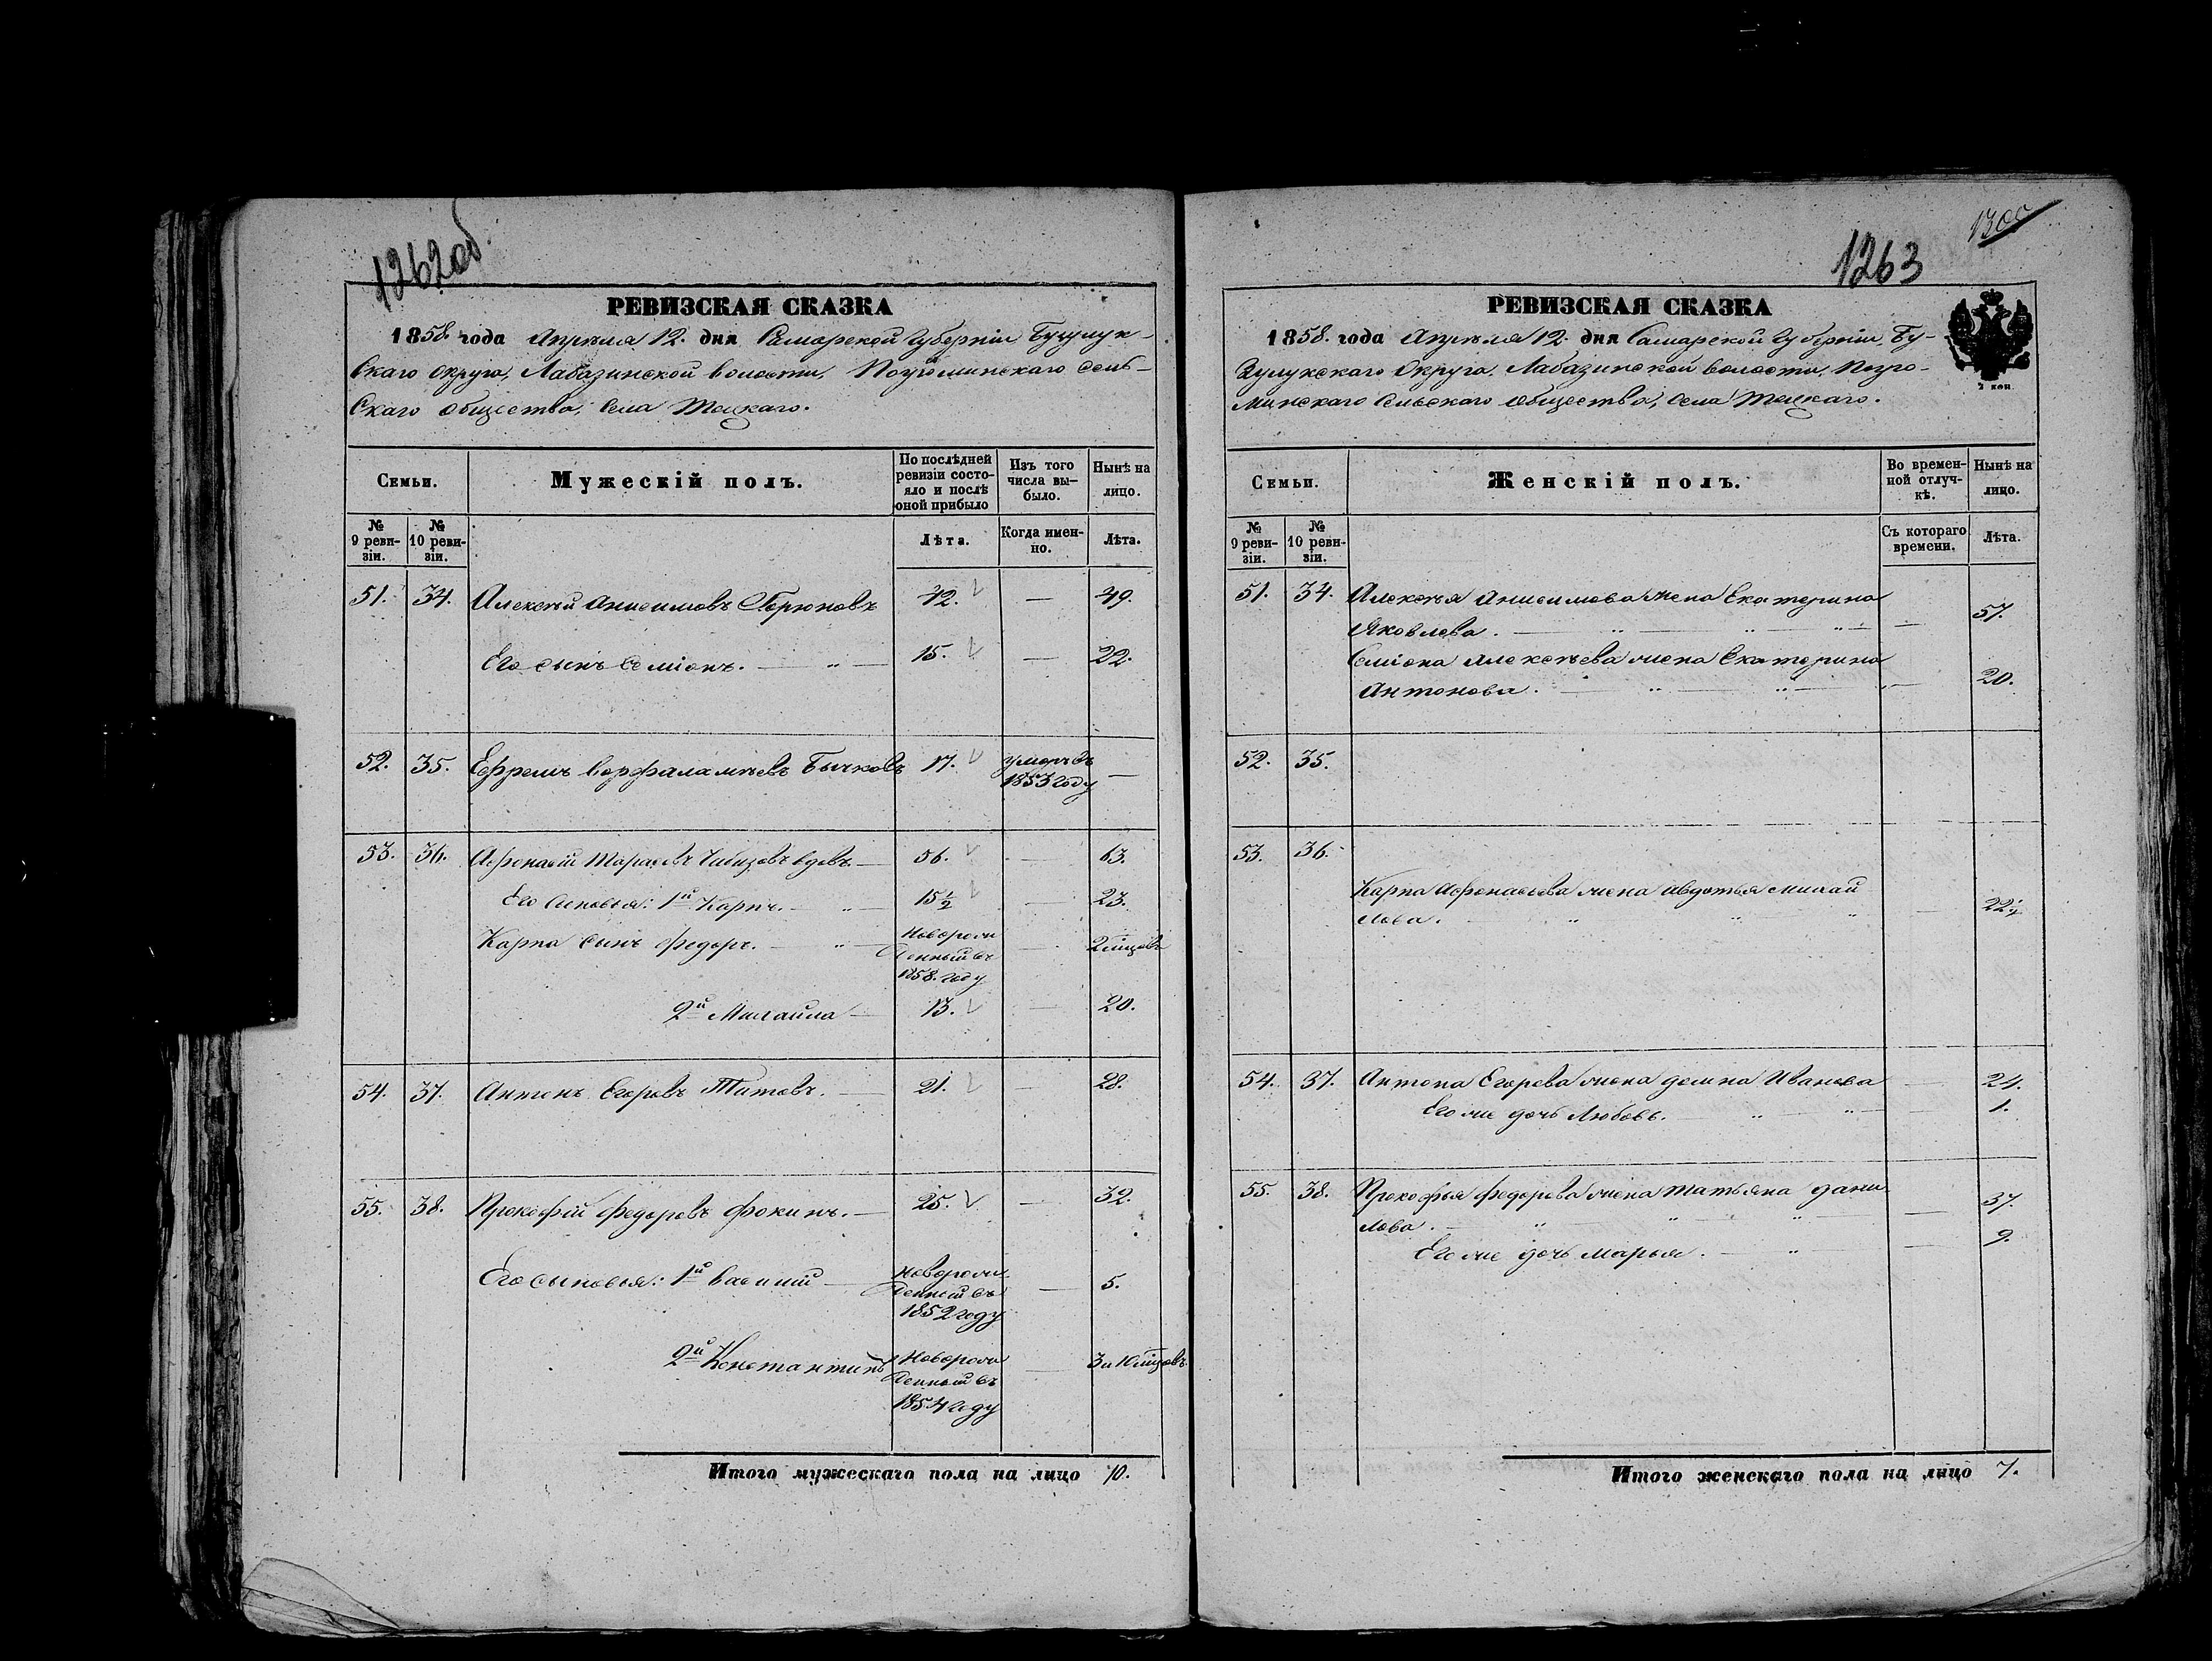 1262об.
РЕВИЗСКАЯ СКАЗКА
1858. года Апрѣля 12. дня Самарской Губерніи Бузулук-
скаго Округа, Лабазинской волости, Погроминскаго сель-
скаго общества, села Тоцкаго.
Семьи.
Мужескій полъ.
По послѣдней ревизіи состо-яло и послѣ оной прибыло
Изъ того числа вы-было.
Нынѣ на лицо.
№ 9 реви-зіи.
№ 10 реви-зіи.
Лѣта.
Когда имен-но.
Лѣта.
51. 34. Алексѣй Анисимовъ 42. — 49.
Его сынъ Семіонъ. — " — 15. — 22.
52. 35. Ефремъ Варфаламѣевъ Бычковъ 17. умеръ въ 1853 году —
53. 36. Афонасій Тарасовъ Чибизовъ вдовъ — 56. — 63.
Его сыновья: 1й Карпъ. — " — 15 1/2 — 23.
Карпа сынъ Федоръ. — " — Новорож денный въ 1858. году — 2 мѣсцовъ
2й Михайла — 13. — 20.
54. 37. Антонъ Егоровъ Титовъ. — 21. — 28.
55. 38. Прокофій Федоровъ Фокинъ. — 25. — 32.
Его сыновья: 1й Василій — Новорож денный въ 1852 году — 5.
2й Константинъ Новорож денный въ 1854 году — 3 и 10 мѣсцовъ
Итого мужескаго пола на лицо 10.
1300
1263
РЕВИЗСКАЯ СКАЗКА
1858. года Апрѣля 12. дня Самарской Губерніи, Бу-
зулукскаго Округа, Лабазинской волости, Погро-
минскаго сельскаго общества, села Тоцкаго.
2 коп.
Семьи.
Женскій полъ.
Во времен-ной отлуч-кѣ.
Нынѣ на лицо.
№ 9 реви-зіи.
№ 10 реви-зіи.
Съ котораго времени.
Лѣта.
51. 34. Алексѣя Анисимова жена Екатерина
Яковлева. — " — " — " — — 57.
Семіона Алексѣева жена Екатерина
Антонова. — " — " — " — 20.
52. 35.
53. 36.
Карпа Афонасьева жена Авдотья Михай
лова. — " — " — " — 22 1/2
54. 37. Антона Егорова жена Домна Иванова — 24.
Его же дочь Любовь. — " — " — 1.
55. 38. Прокофья Федорова жена Татьяна Дани
лова. — " — " — " — — 37.
Его же дочь Марья. — " — — 9.
Итого женскаго пола на лицо 7.